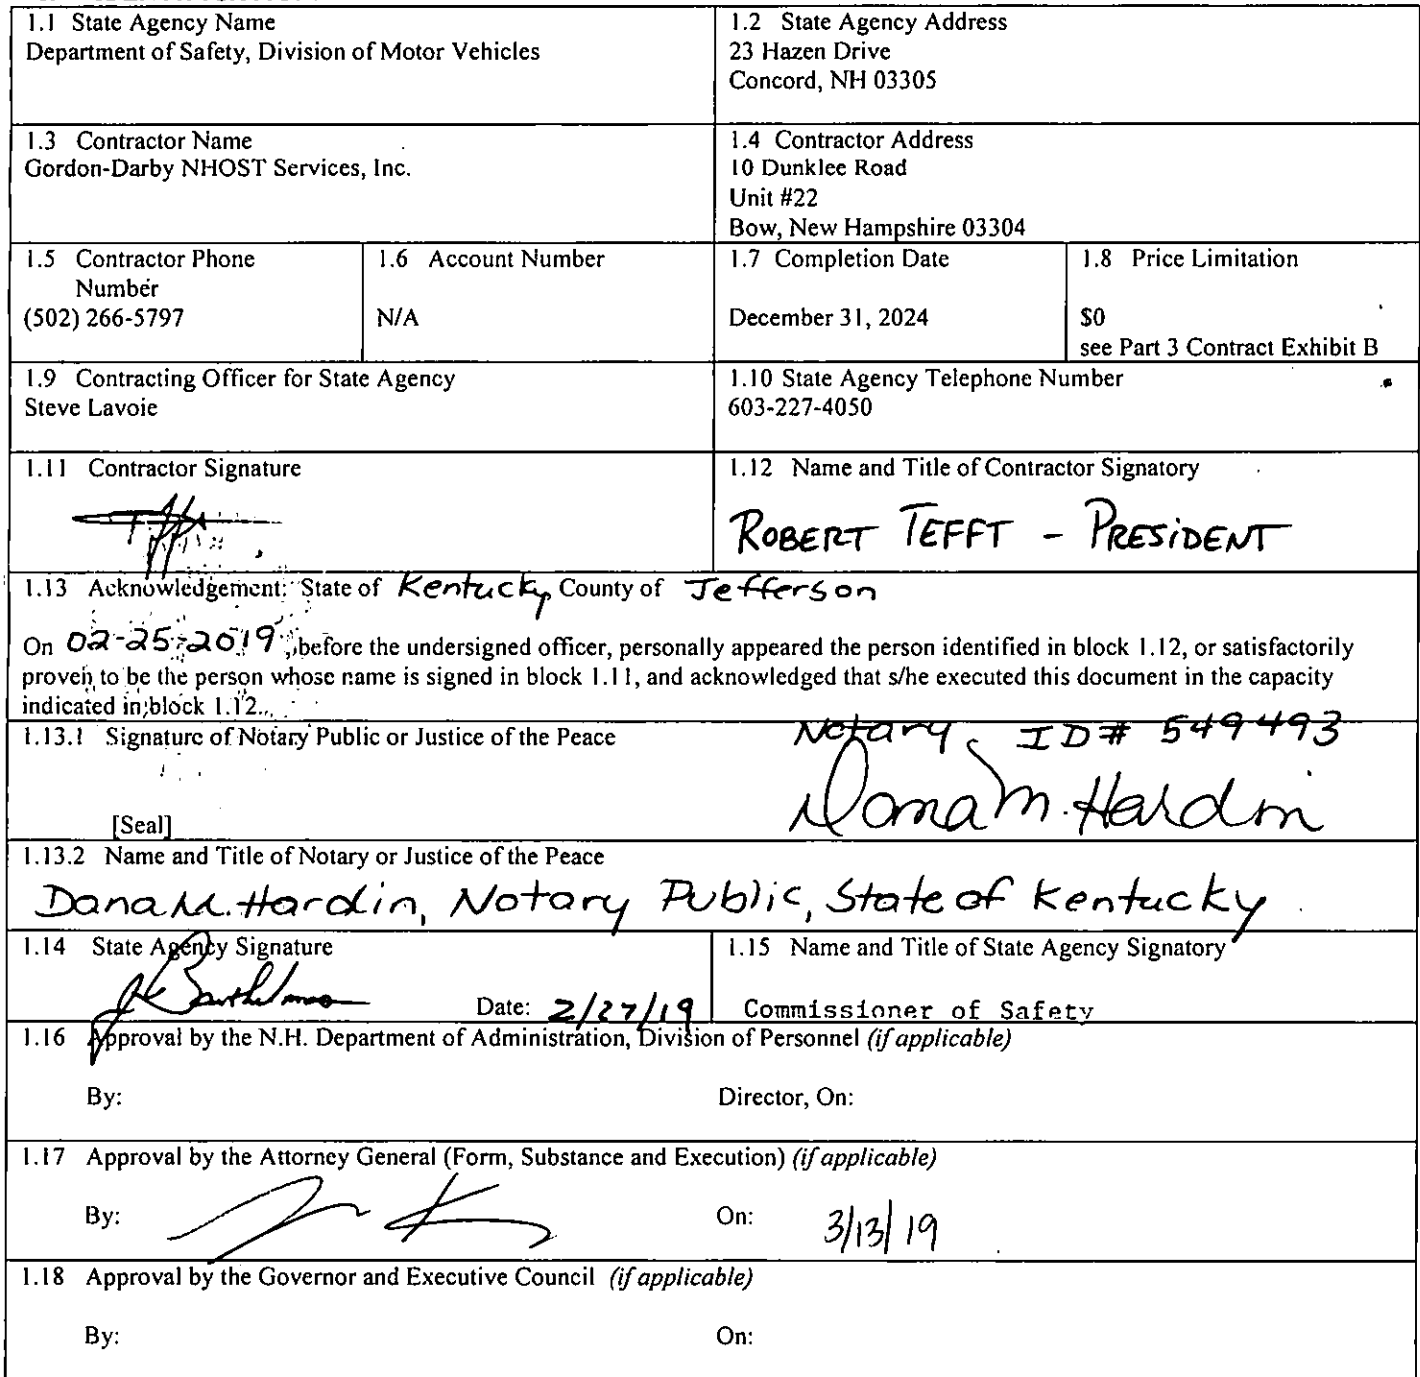 1.1 State Agency Name
Department of Safety, Division of Motor Vehicles
1.2 State Agency Address
23 Hazen Drive
Concord, NH 03305
1.3 Contractor Name
Gordon-Darby NHOST Services, Inc.
1.4 Contractor Address
10 Dunklee Road
Unit #22
Bow, New Hampshire 03304
1.5 Contractor Phone
Number
(502) 266-5797
1.6 Account Number
N/A
1.7 Completion Date
December 31, 2024
1.8 Price Limitation
$0
see Part 3 Contract Exhibit B
1.9 Contracting Officer for State Agency
Steve Lavoie
1.10 State Agency Telephone Number
603-227-4050
1.11 Contractor Signature
1.12 Name and Title of Contractor Signatory
ROBERT TEFFT - PRESIDENT
1.13 Acknowledgement: State of Kentucky, County of Jefferson
On 02-25-2019, before the undersigned officer, personally appeared the person identified in block 1.12, or satisfactorily
proven to be the person whose name is signed in block 1.11, and acknowledged that s/he executed this document in the capacity
indicated in block 1.12.
1.13.1 Signature of Notary Public or Justice of the Peace
Notary ID# 549493
Dana M. Hardin
[Seal]
1.13.2 Name and Title of Notary or Justice of the Peace
Dana M. Hardin, Notary Public, State of Kentucky
1.14 State Agency Signature
Date: 2/27/19
1.15 Name and Title of State Agency Signatory
Commissioner of Safety
1.16 Approval by the N.H. Department of Administration, Division of Personnel (if applicable)
By: Director, On:
1.17 Approval by the Attorney General (Form, Substance and Execution) (if applicable)
By: On: 3/13/19
1.18 Approval by the Governor and Executive Council (if applicable)
By: On: